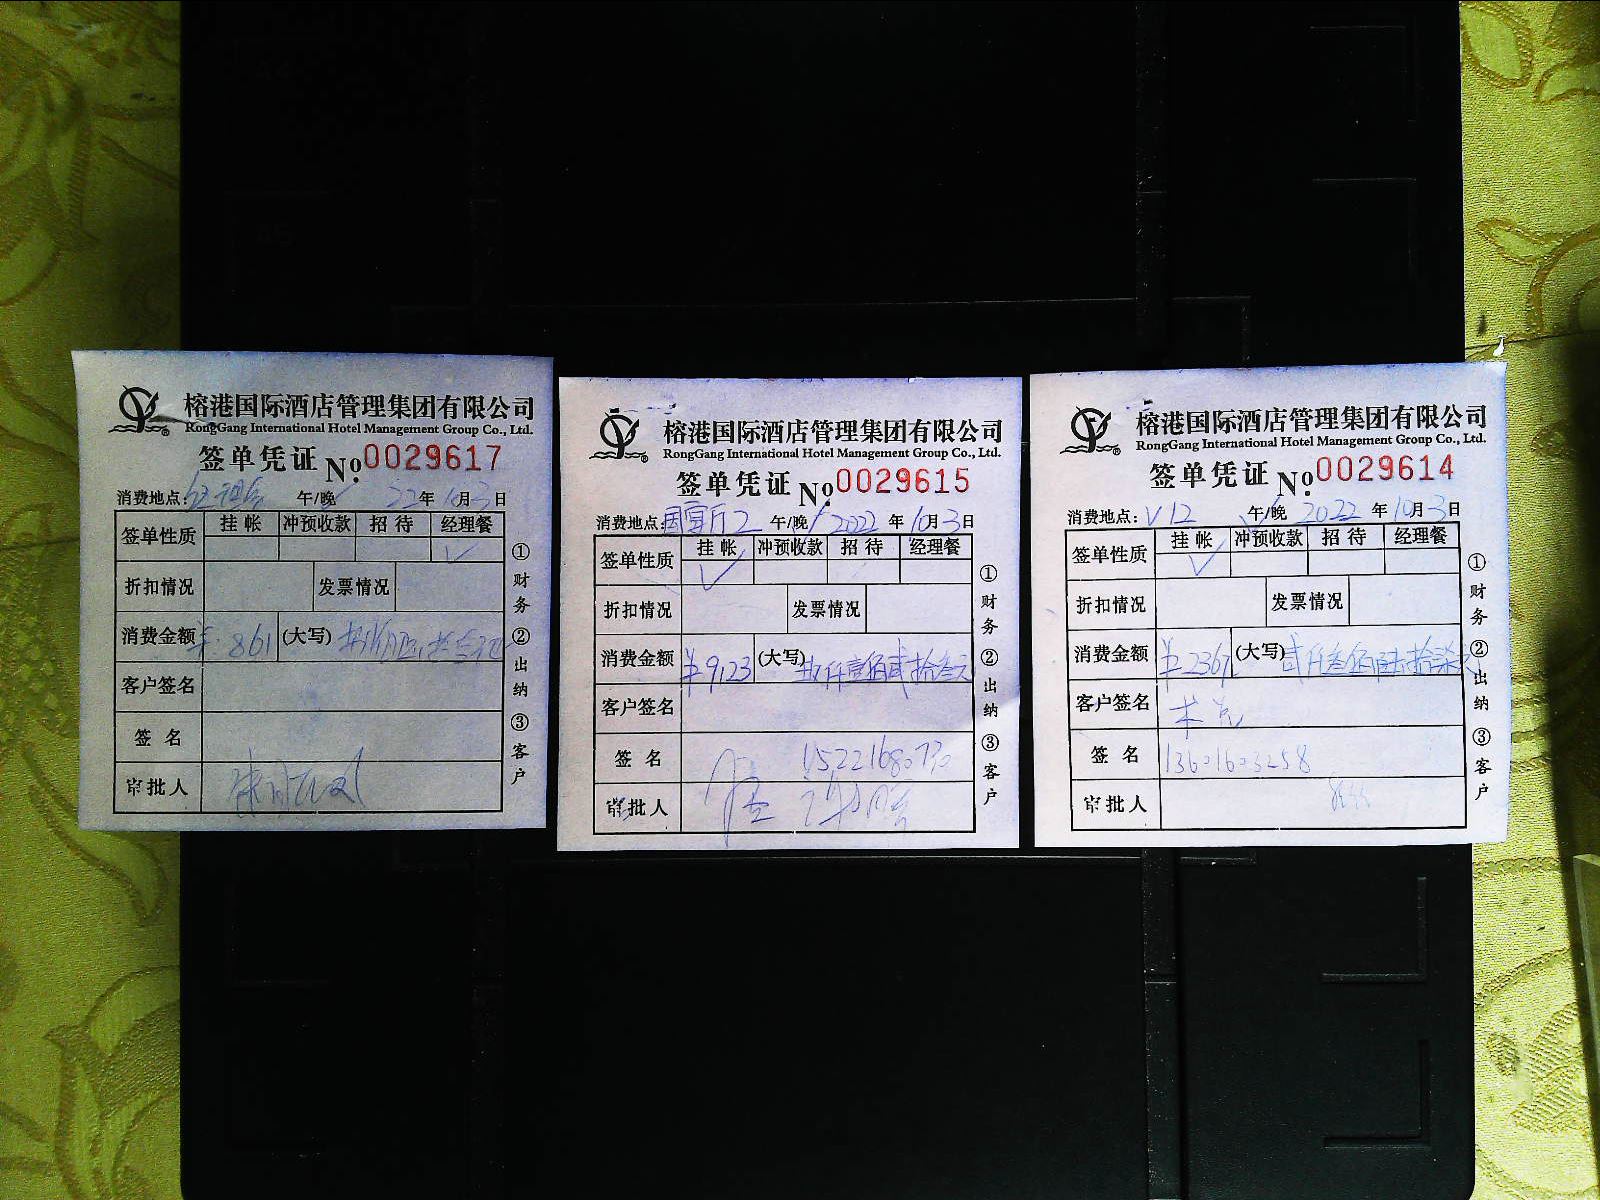 榕港国际酒店管理集团有限公司
RongGang International Hotel Management Group Co., Ltd.
签单凭证 №0029617
消费地点: 午/晚 22年10月3日
签单性质 挂帐 冲预收款 招待 经理餐
✓
折扣情况 发票情况
消费金额 ¥861 (大写)
客户签名
签名
审批人
①财务 ②出纳 ③客户
榕港国际酒店管理集团有限公司
RongGang International Hotel Management Group Co., Ltd.
签单凭证 №0029615
消费地点: 国宴厅2 午/晚✓ 2022年10月3日
签单性质 挂帐 冲预收款 招待 经理餐
✓
折扣情况 发票情况
消费金额 ¥9123 (大写) 玖仟壹佰贰拾叁元
客户签名
签名
审批人
①财务 ②出纳 ③客户
榕港国际酒店管理集团有限公司
RongGang International Hotel Management Group Co., Ltd.
签单凭证 №0029614
消费地点: V12 ✓午/晚 2022年10月3日
签单性质 挂帐 冲预收款 招待 经理餐
✓
折扣情况 发票情况
消费金额 ¥2367 (大写) 贰仟叁佰陆拾柒元
客户签名
签名 13601603258
审批人
①财务 ②出纳 ③客户